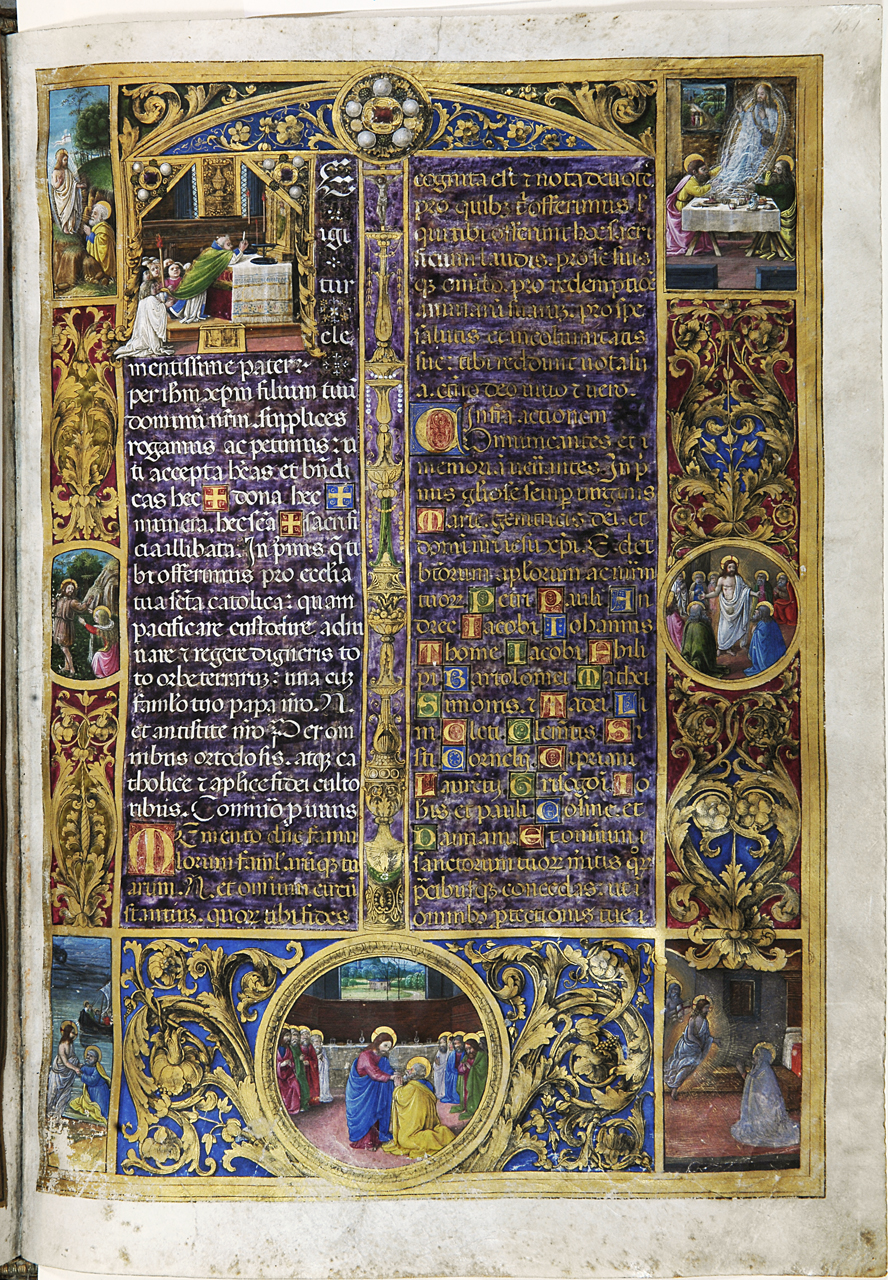 E
igi
tur
cle
mentissime pater
per ihm xpm filium tuū
dominū nrm. supplices
rogamus ac petimus: u
ti accepta hēas et bn̄di
cas hec ✠ dona hec ✠
munera. hec scā ✠ sacrifi
cia illibata. In p̄mis q̄ ti
bi offerimus pro ecclia
tua scta catolica: quam
pacificare custodire adu
nare ⁊ regere digneris to
to orbe terrarꝝ: una cuꝫ
famlo tuo papa nr̄o. N.
et antistite nr̄o Per om
nibus ortodosis. atqꝫ ca
tholice ⁊ aplice fidei culto
ribus.
Memento dn̄e famu
lorum faml. rūqꝫ tu
arum. N. et omnium circū
stantiuꝫ. quorꝝ tibi fides
cognita est ⁊ nota devotē
pro quibꝫ t̄ offerimus l
qui tibi offerunt hoc scri
ficium laudis. pro se suis
qꝫ omībꝫ. pro redemptiōe
animarū suarꝫ. pro spe
salutis et incolumitatis
sue: tibi reddunt uota su
a. etno deo uiuo ⁊ uero.
Infra actionem
Comunicantes. et
memoriā uenātes. In p
mis gliose semp uirginis
Marie. genitricis dei. et
domī nr̄i iesu xp̄i. S. et et
btorum aplorum ac mrm
tuorꝝ Petri Pauli An
dree Iacobi Iohannis
Thome Iacobi Phili
pi Bartolomei Mathei
Simonis. ⁊ Tadei Li
ni Cleti Clemtis Si
sti Cornelij Cipriani
Lauretij Grisogōi Io
his et pauli Cosme. et
Damiani Et omnium
sanctorum tuorꝝ mitis qꝝ
p̄cibusqꝫ concedas. ut i
omnibꝫ ptectionis tue